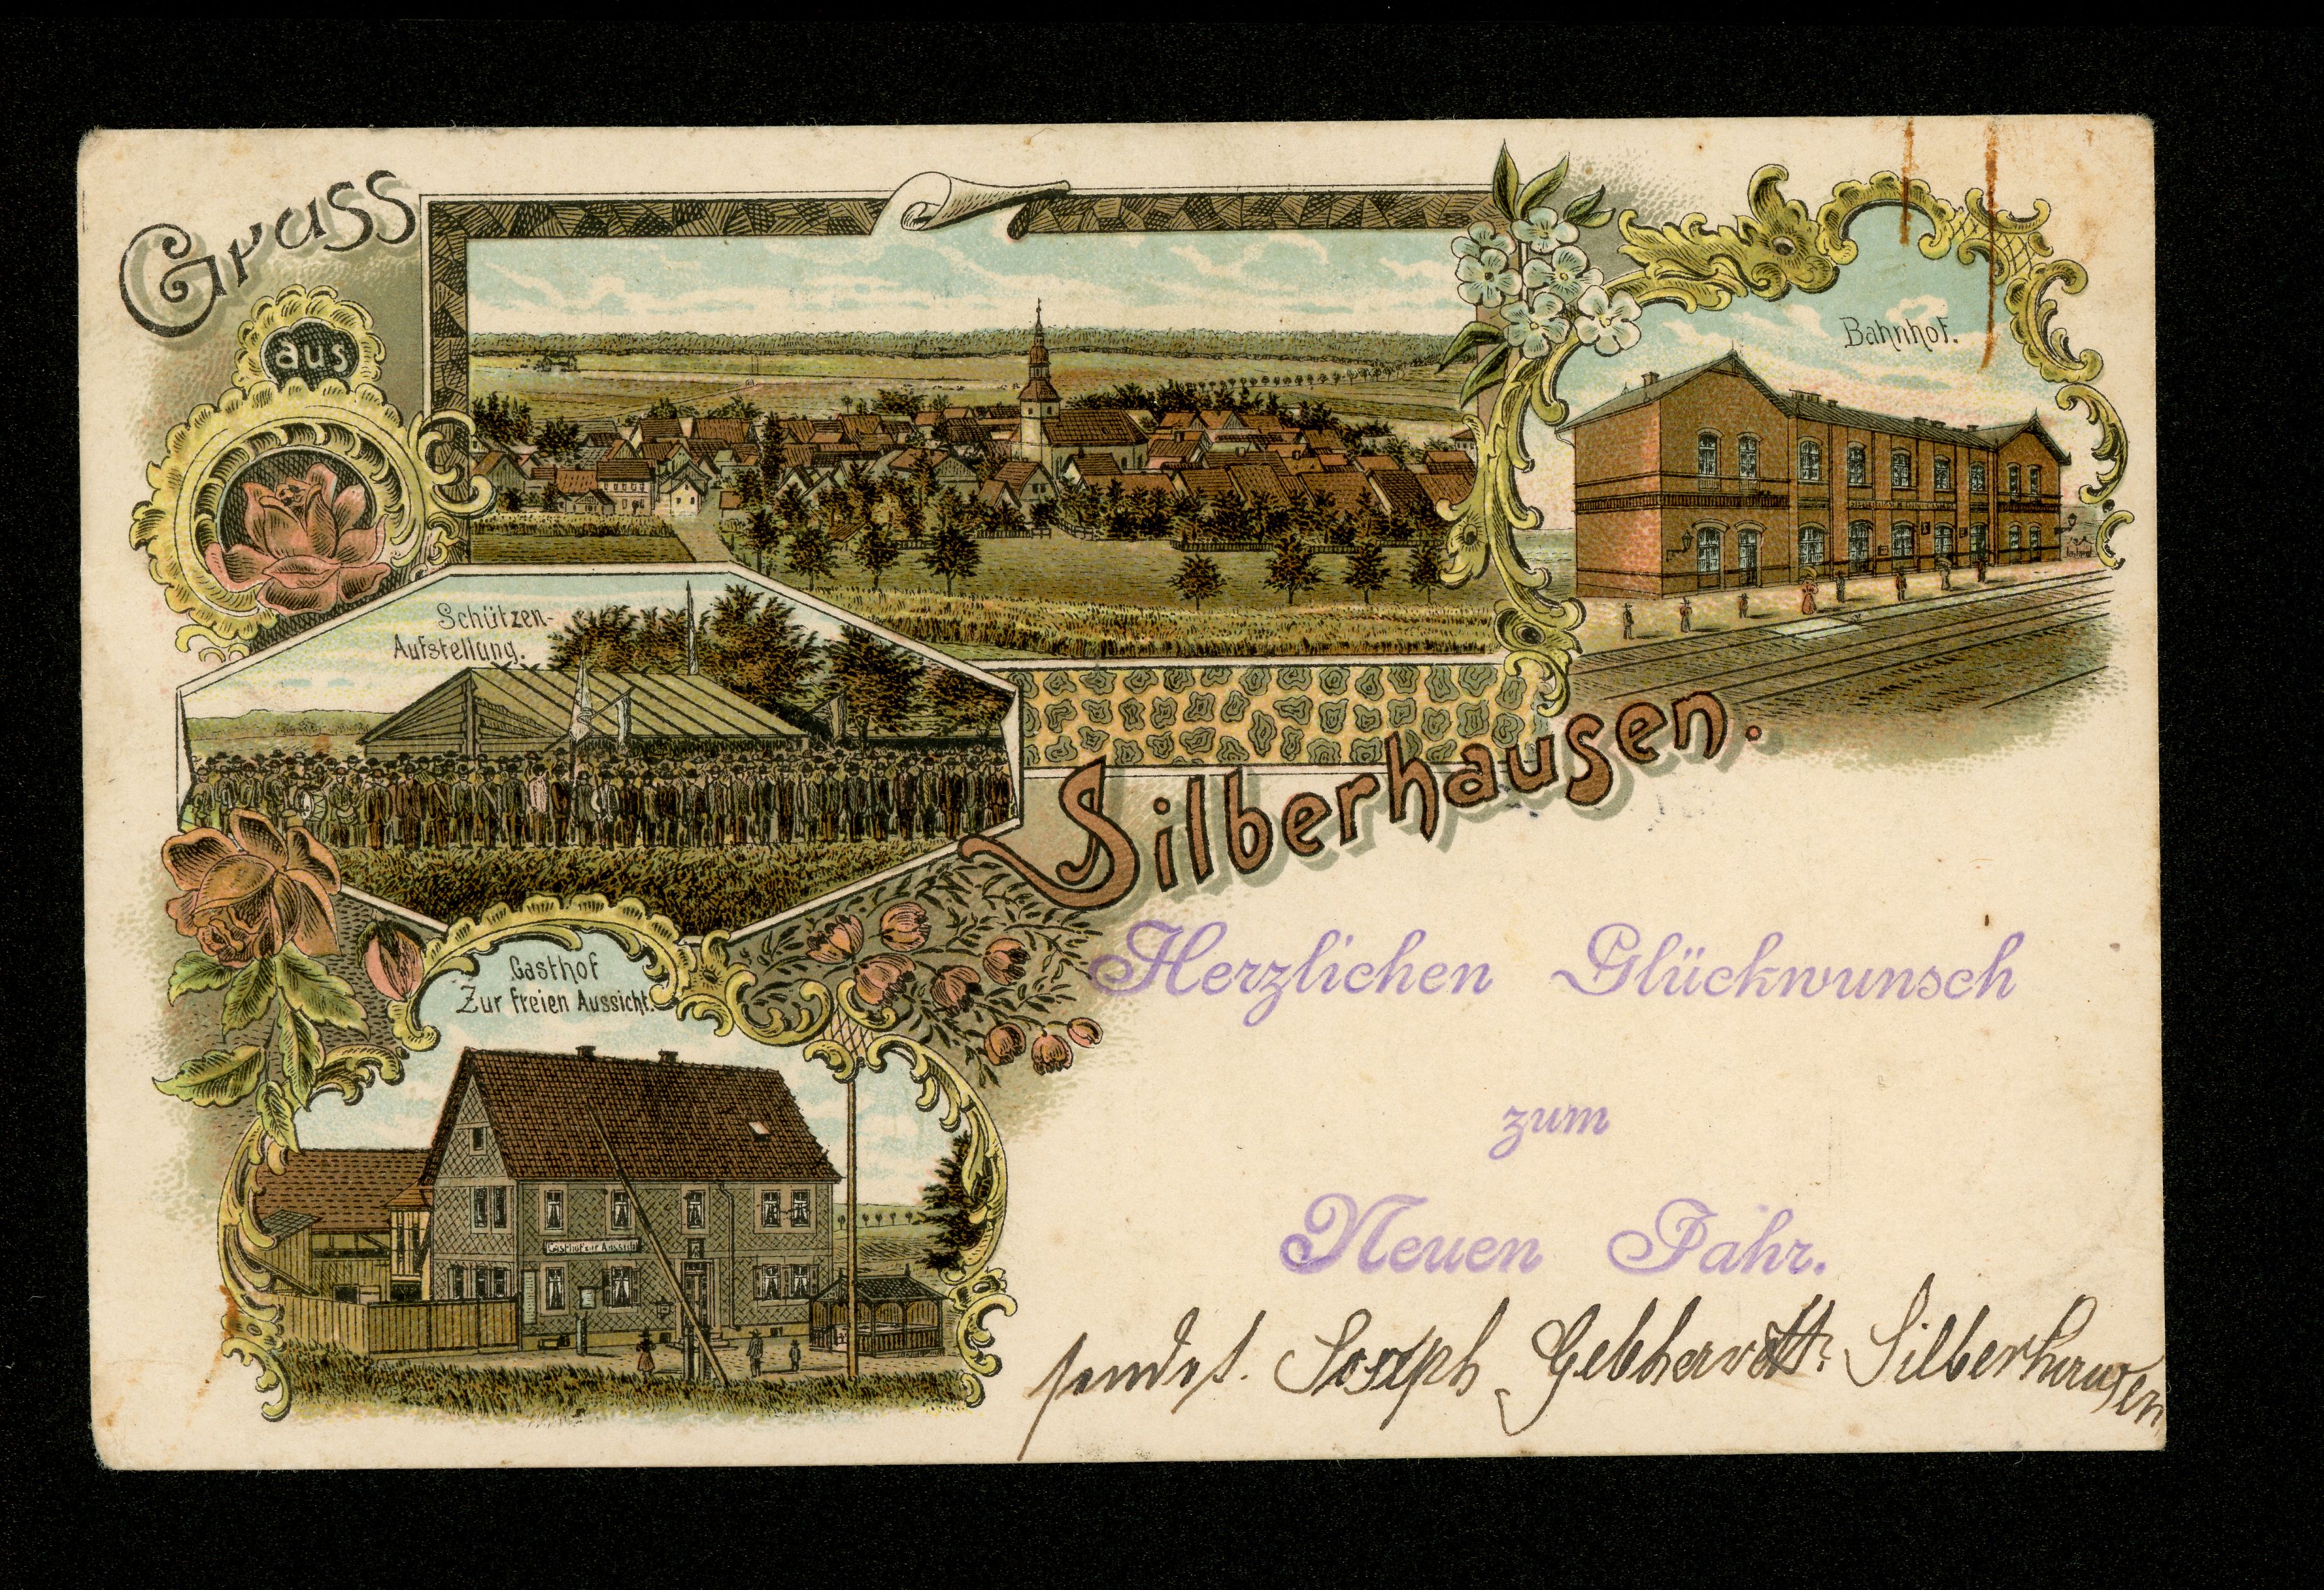 Gruss
aus
Bahnhof.
Schützen-
Aufstellung.
Silberhausen.
Gasthof
Zur freien Aussicht.
Herzlichen Glückwunsch
zum
Neuen Jahr.
sendet. Joseph Gebhardt. Silberhausen